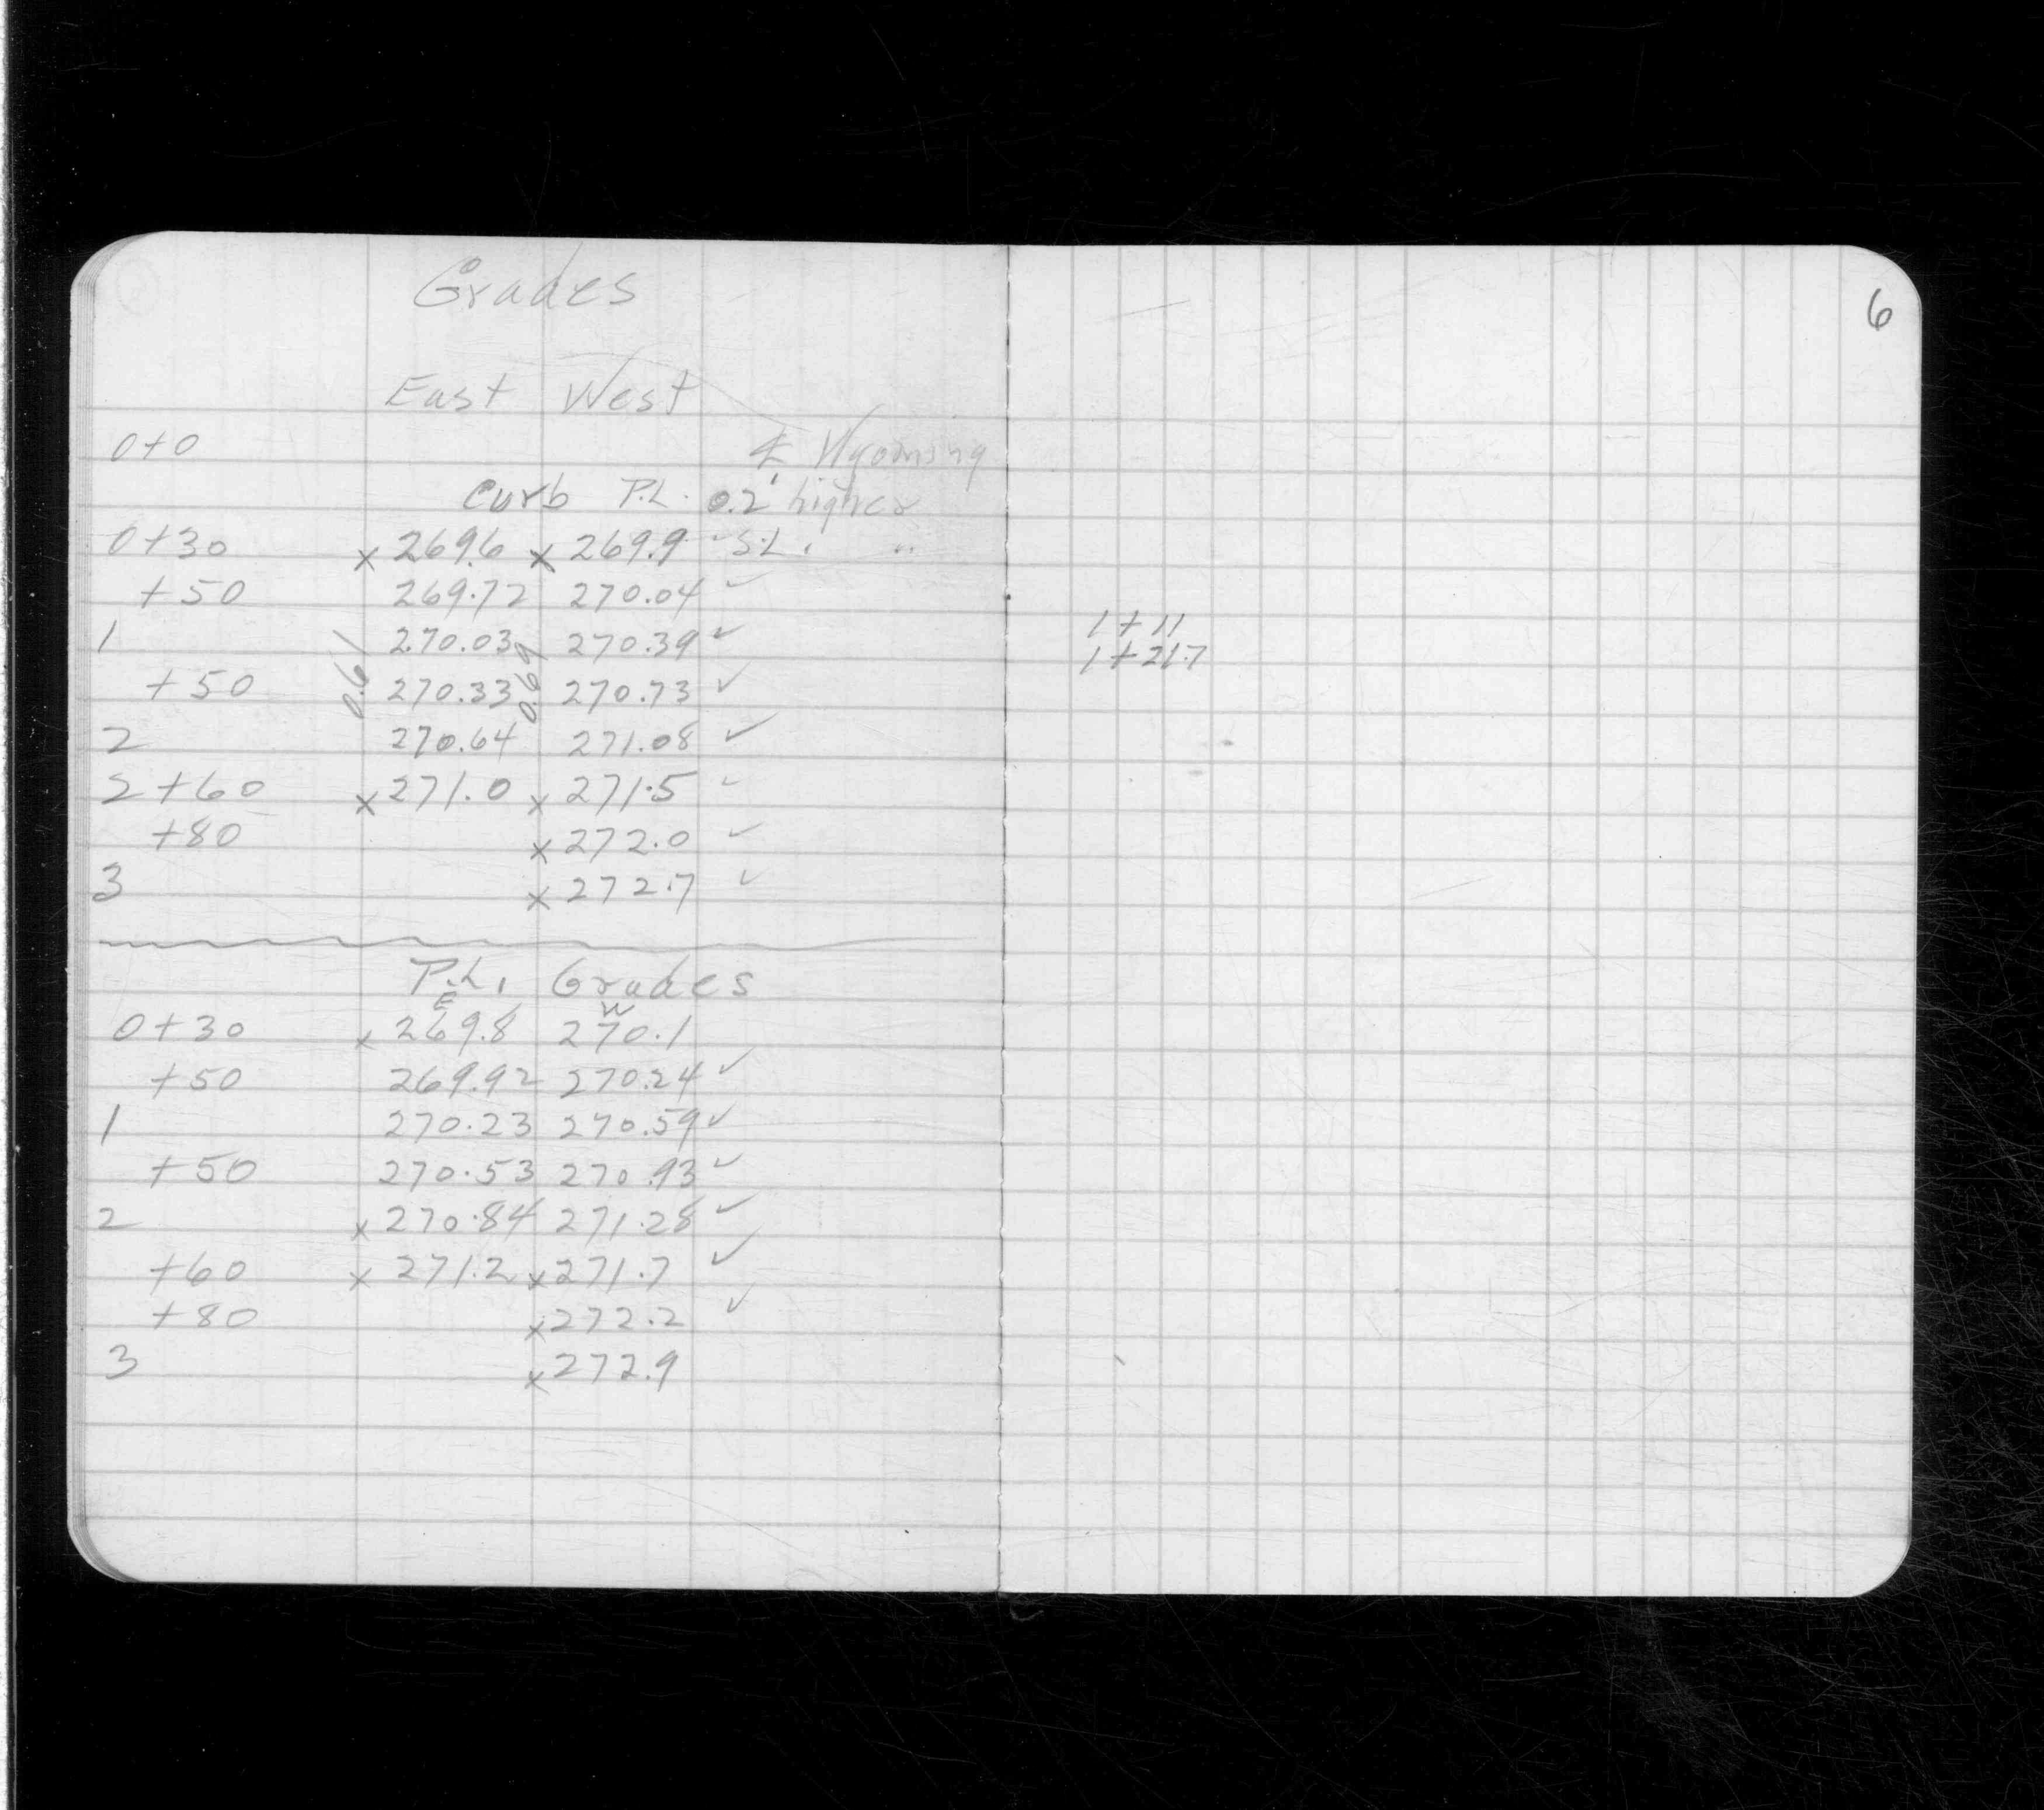 Grades
East West
0+0 ℄ Wyoming
Curb P.L. 0.2' higher
0+30 x 269.6 x 269.9 S.L. "
+50 269.72 270.04 ✓
1 270.03 270.39 ✓
0.61 0.69
+50 270.33 270.73 ✓
2 270.64 271.08 ✓
2+60 x 271.0 x 271.5 ✓
+80 x 272.0 ✓
3 x 272.7 ✓
P.L. Grades
E W
0+30 x 269.8 270.1
+50 269.92 270.24 ✓
1 270.23 270.59 ✓
+50 270.53 270.93 ✓
2 x 270.84 271.28 ✓
+60 x 271.2 x 271.7 ✓
+80 x 272.2 ✓
3 x 272.9
6
1+11
1+21.7